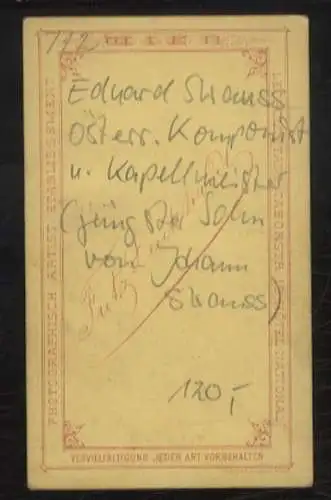 712
WIEN
PHOTOGRAPHISCH ARTIST ETABLISSEMENT
Eduard Strauss
österr. Komponist
u. Kapellmeister
(jüngster Sohn
von Johann
Strauss)
Fritz
120,-
HOTEL NATIONAL
VERVIELFÄLTIGUNG JEDER ART VORBEHALTEN